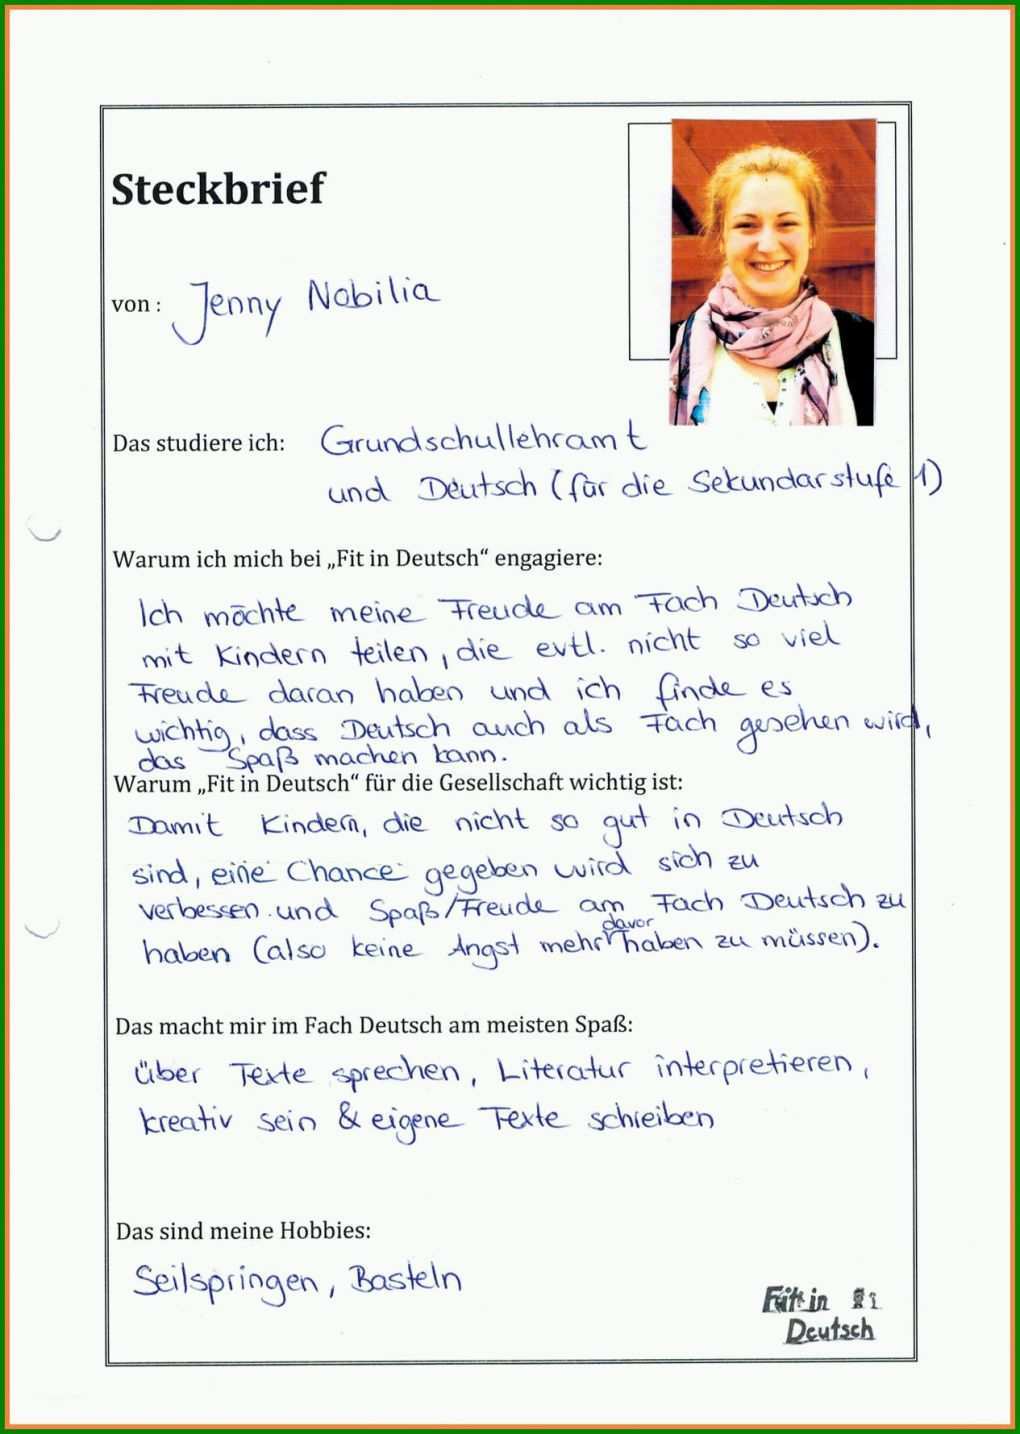 Steckbrief
von : Jenny Nobilia
Das studiere ich: Grundschullehramt
und Deutsch (für die Sekundarstufe 1)
Warum ich mich bei „Fit in Deutsch“ engagiere:
Ich möchte meine Freude am Fach Deutsch
mit Kindern teilen, die evtl. nicht so viel
Freude daran haben und ich finde es
wichtig, dass Deutsch auch als Fach gesehen wird,
das Spaß machen kann.
Warum „Fit in Deutsch“ für die Gesellschaft wichtig ist:
Damit Kindern, die nicht so gut in Deutsch
sind, eine Chance gegeben wird sich zu
verbessen und Spaß/Freude am Fach Deutsch zu
haben (also keine Angst mehr davor haben zu müssen).
Das macht mir im Fach Deutsch am meisten Spaß:
über Texte sprechen, Literatur interpretieren,
kreativ sein & eigene Texte schreiben
Das sind meine Hobbies:
Seilspringen, Basteln
Fit in
Deutsch